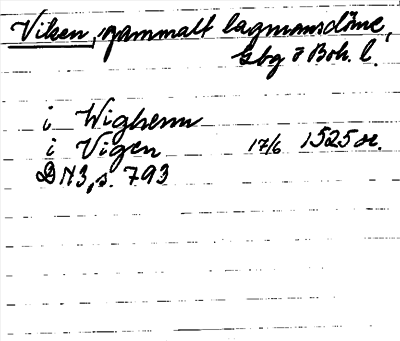 Viken, gammalt lagmansdöme,
Gbg o Boh. l.
i Wighenn
i Vigen 17/6 1525 or.
DN 3, s. 793